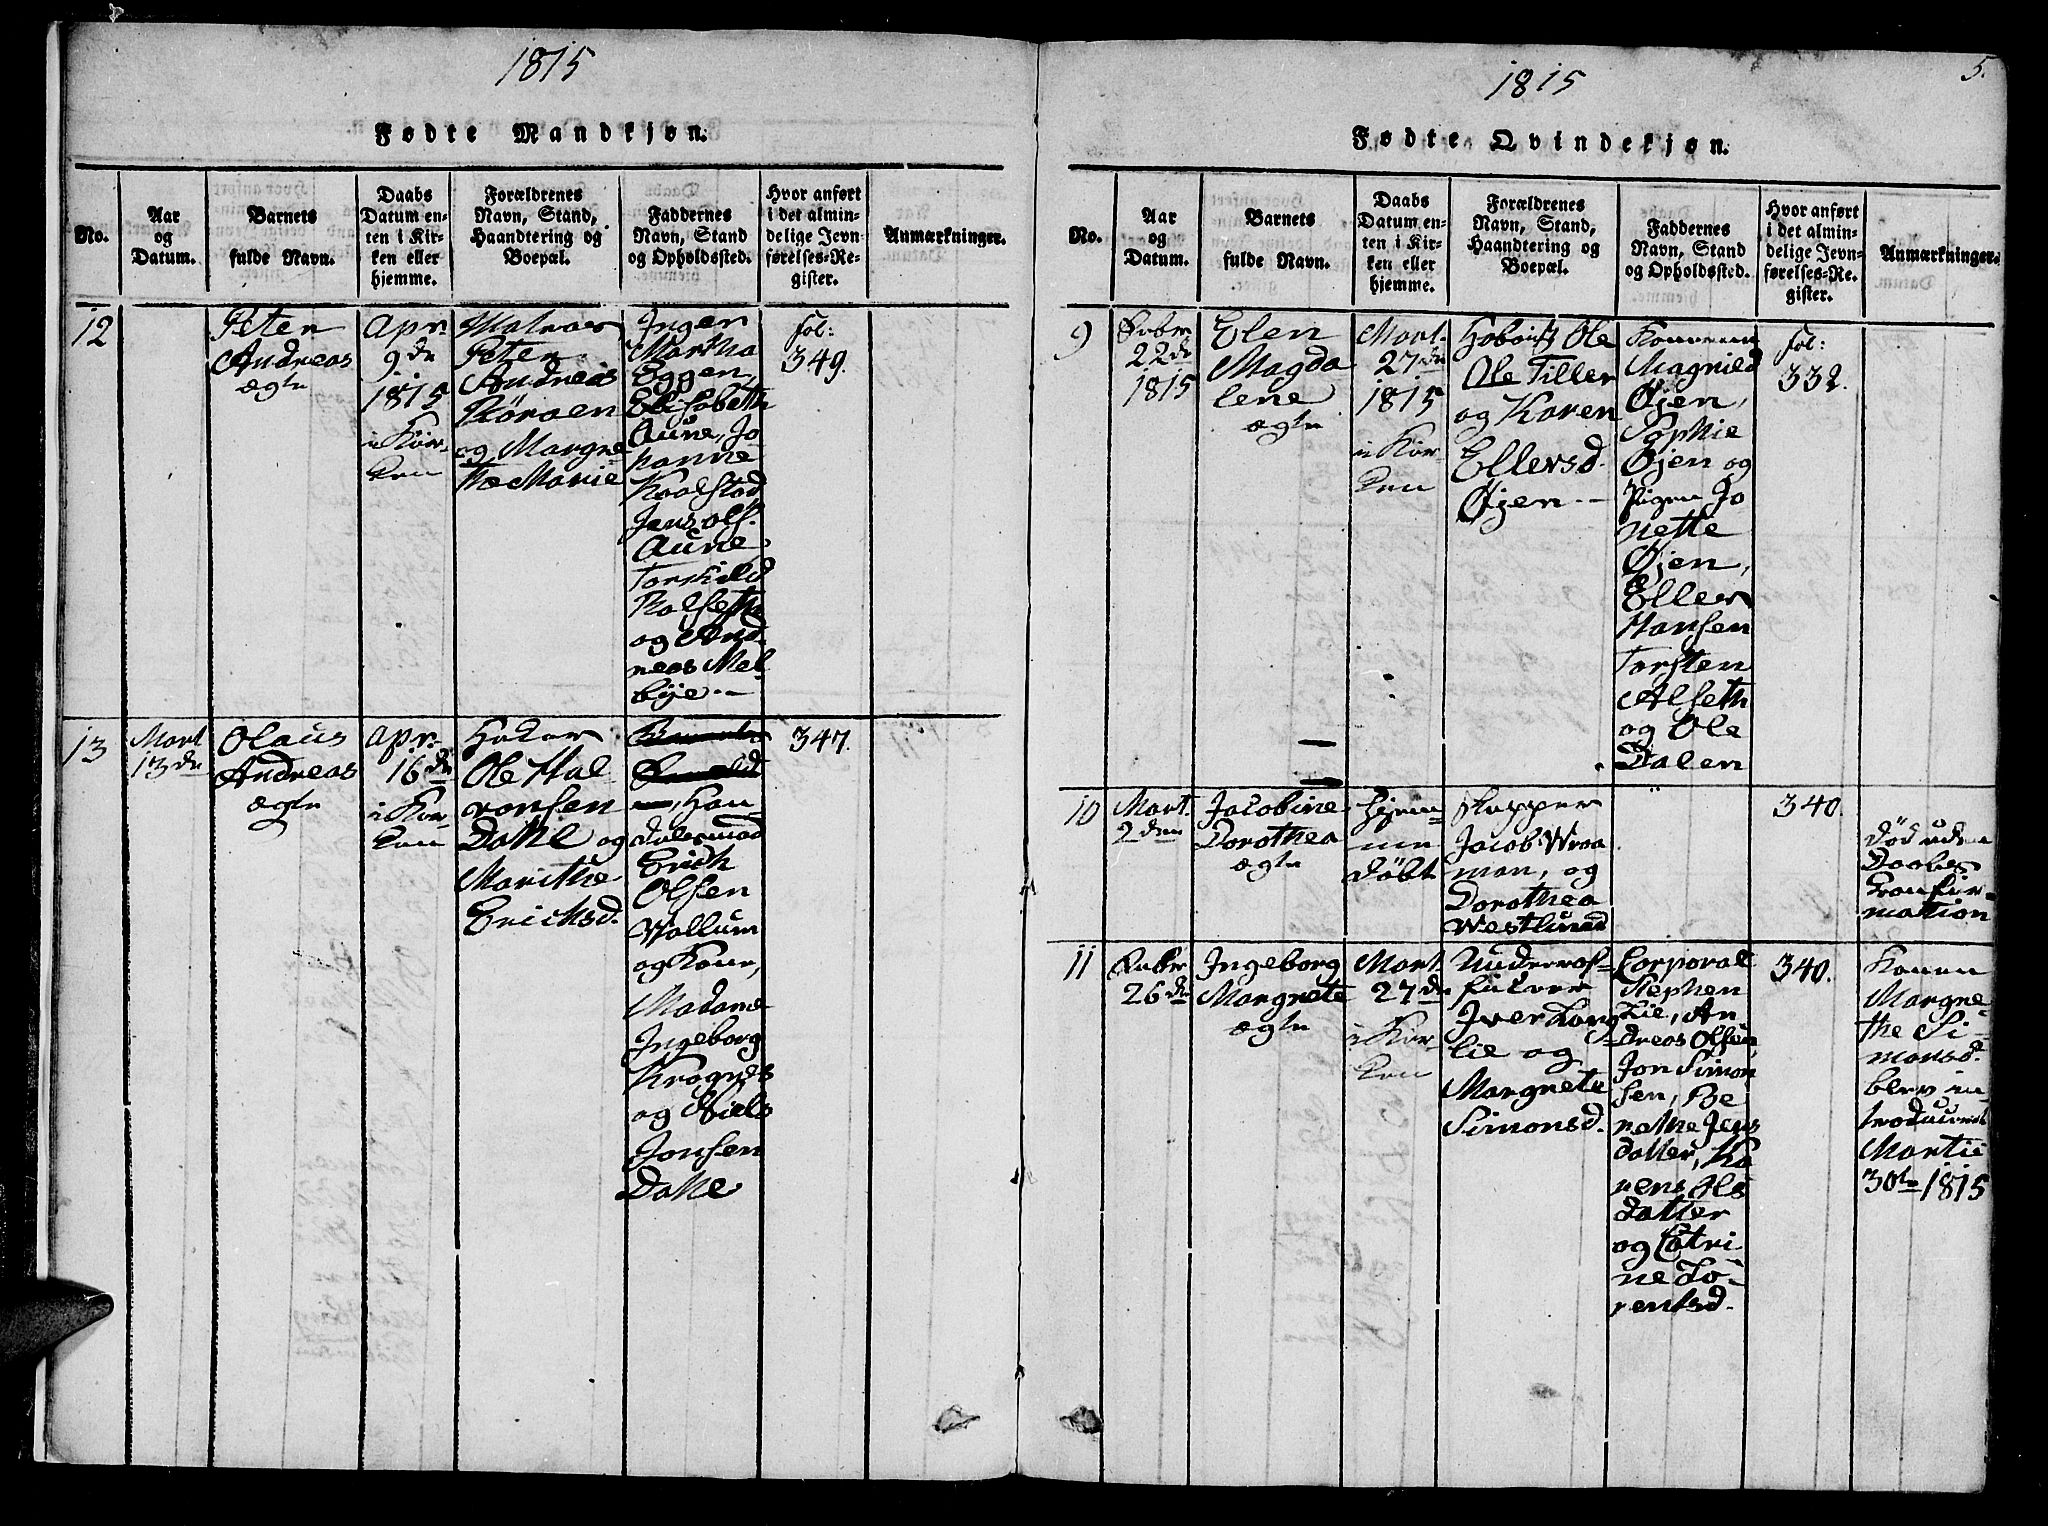 1815
Fødte Mandkjøn.
No.
Aar
og
Datum.
Barnets
fulde Navn.
Daabs
Datum en-
ten i Kir-
ken eller
hjemme.
Forældrenes
Navn, Stand,
Haandtering og
Boepæl.
Faddernes
Navn, Stand
og Opholdssted.
Hvor anført
i det almin-
delige Jevn-
førelses-Re-
gister.
Anmærkninger.
12
Peter
Andreas
ægte
Apr.
9de
1815
i Kir-
ken
Matros
Peter
Andreas
Röraen
og Margre-
the Marie
Inger
Martha
Eggen,
Elisabeth
Aune, Jo
hanne
Kaalstad
Jens Ols.
Aune
Torkild
Rolseth
og And
reas Mel
bye.
Fol:
349.
13
Mart
13de
Olaus
Andreas
ægte
Apr.
16de
i Kir-
ken
Ole Hal
vorsen
Dahle og
Marithe
Ericksd.
Han
delsmad
Erich
Olsen
Vollum
og Kone,
Madame
Ingeborg
Krognes
og Niels
Jonsen
Dahle
347.
1815
5.
Fødte Qvindekjøn.
No.
Aar
og
Datum.
Barnets
fulde Navn.
Daabs
Datum en-
ten i Kir-
ken eller
hjemme.
Forældrenes
Navn, Stand,
Haandtering og
Boepæl.
Faddernes
Navn, Stand
og Opholdssted.
Hvor anført
i det almin-
delige Jevn-
førelses-Re-
gister.
Anmærkninger.
9
Febr
22de
1815
Elen
Magda
lene
ægte
Mart.
27de
1815
i Kir-
ken
Ole
Ole Tiller
og Karen
Ellersd.
Øjen
Konerne
Magnild
Øjen,
Sophie
Øjen og
Pigen Jo
nette
Øjen,
Eller
Hansen
Torsten
Alseth
og Ole
Dalen
Fol:
332.
10
Mart.
2den
Jacobine
Dorothea
ægte
Hjem-
me
døbt
Skipper
Jacob Wraa
man, og
Dorothea
Westlund
340.
Død uden
Daabs
Confir-
mation
11
Febr
26de
Ingeborg
Margrete
ægte
Mart.
27de
i Kir-
ken
Underof-
ficer
Iver Lang
lie og
Margrete
Simonsd.
Corporal
Stephen
Lie, An
dreas Olsen,
Jon Simon
sen, Be
rethe Jens
datter, Ka
rens Ols
datter
og Catri-
ne Lo-
rentsd.
340.
Konen
Margre-
the Si-
monsd.
blev in-
troduceret
Martii
30te 1815